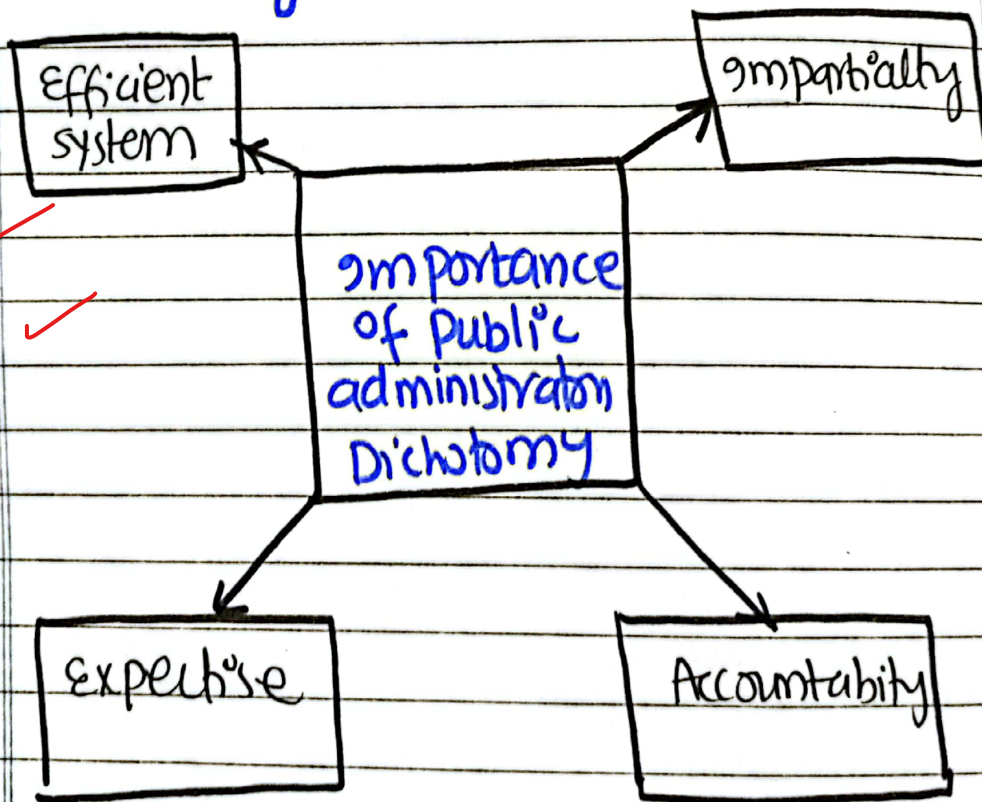 Efficient
system
Impartialty
Importance
of Public
administraton
Dichotomy
Expertise
Accountabity